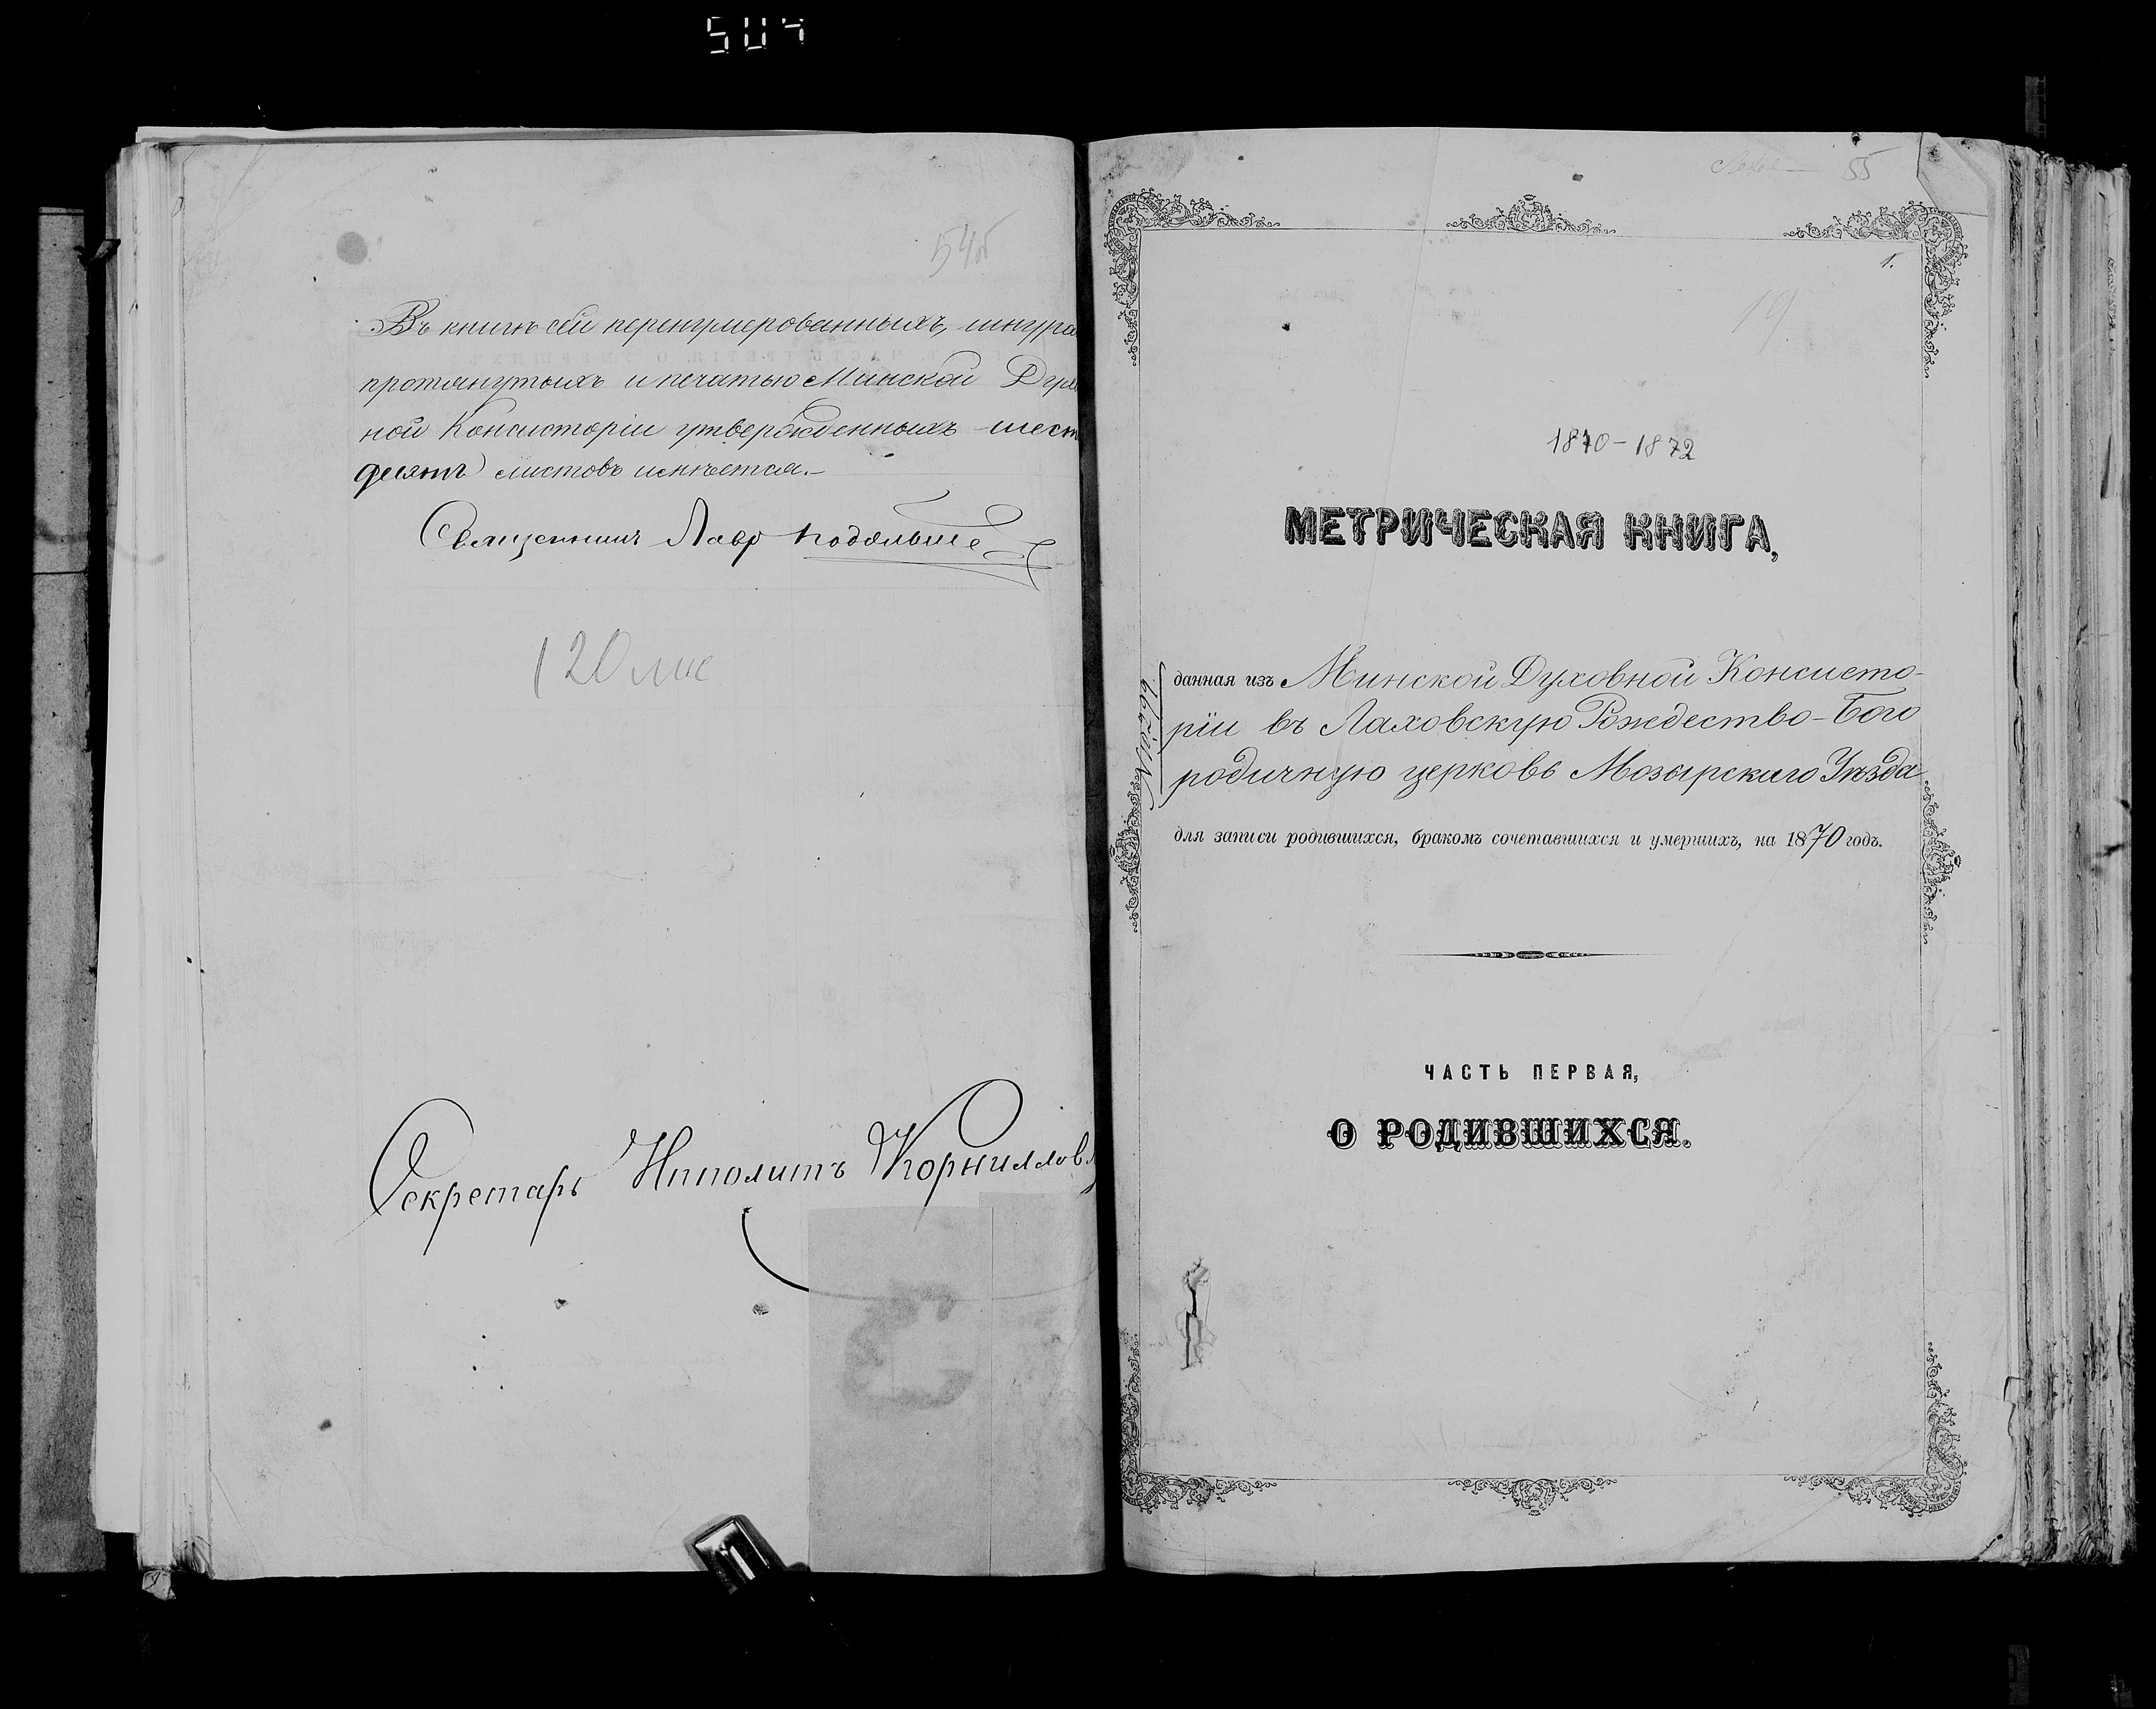 504
54об
Въ книгѣ сей перенумерованныхъ, шнура
протянутыхъ и печатью Минской Духо
ной Консисторіи утвержденныхъ шест
десятъ листовъ имѣется.—
Священникъ Лавр
120 лис
Секретарь Ипполитъ Корнилов
55
1.
19
1870-1872
МЕТРИЧЕСКАЯ КНИГА,
данная изъ Минской Духовной Консисто-
ріи въ Лаховскую Рождество-Бого
родичную церковь Мозырскаго Уѣзда
для записи родившихся, бракомъ сочетавшихся и умершихъ, на 1870 годъ.
ЧАСТЬ ПЕРВАЯ,
О РОДИВШИХСЯ.